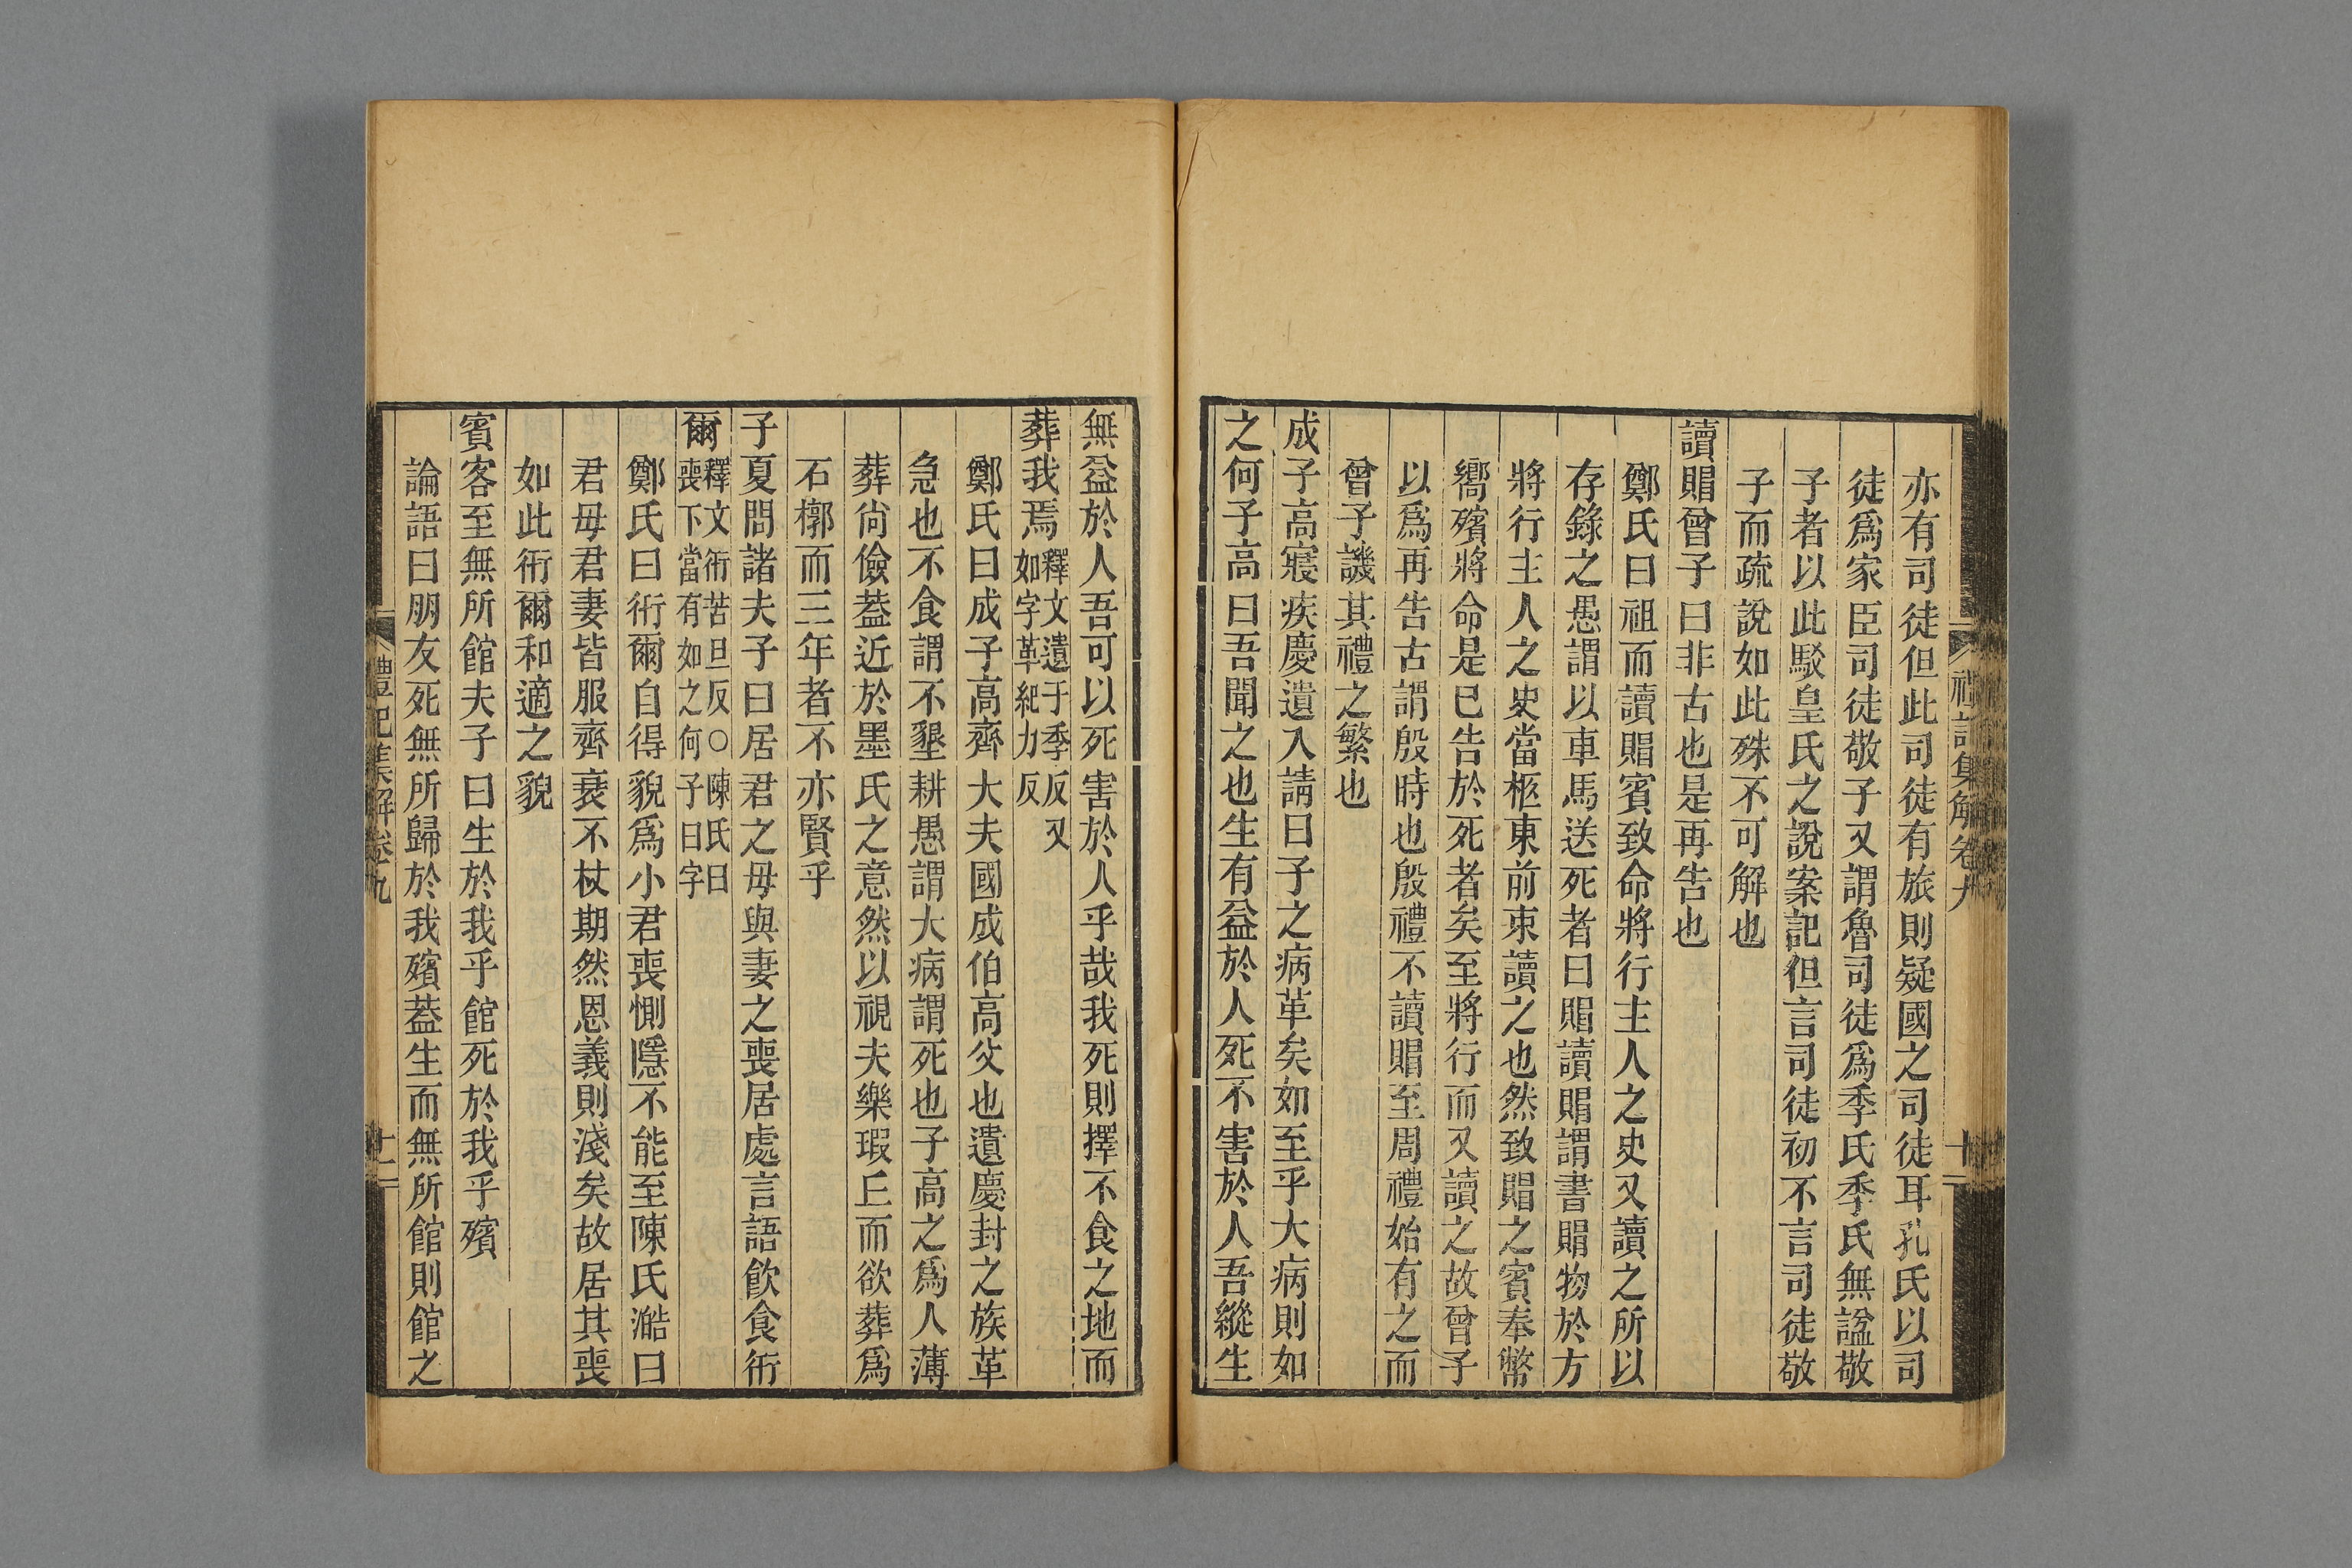 禮記集解卷九
十一
亦有司徒但此司徒有旅則疑國之司徒耳孔氏以司
徒爲家臣司徒敬子又謂魯司徒爲季氏季氏無諡敬
子者以此駁皇氏之說案記但言司徒初不言司徒敬
子而疏說如此殊不可解也
讀賵曾子曰非古也是再告也
鄭氏曰祖而讀賵賓致命將行主人之史又讀之所以
存錄之愚謂以車馬送死者曰賵讀賵謂書賵物於方
將行主人之史當柩東前束讀之也然致賵之賓奉幣
嚮殯將命是已告於死者矣至將行而又讀之故曾子
以爲再告古謂殷時也殷禮不讀賵至周禮始有之而
曾子譏其禮之繁也
成子高寢疾慶遺入請曰子之病革矣如至乎大病則如
之何子高曰吾聞之也生有益於人死不害於人吾縱生
無益於人吾可以死害於人乎哉我死則擇不食之地而
葬我焉釋文遺于季反又
如字革紀力反
鄭氏曰成子高齊大夫國成伯高父也遺慶封之族革
急也不食謂不墾耕愚謂大病謂死也子高之爲人薄
葬尙儉葢近於墨氏之意然以視夫樂瑕丘而欲葬爲
石槨而三年者不亦賢乎
子夏問諸夫子曰居君之毋與妻之喪居處言語飮食衎
爾釋文衎苦旦反○陳氏曰
喪下當有如之何子曰字
鄭氏曰衎爾自得貌爲小君喪惻隱不能至陳氏澔曰
君毋君妻皆服齊衰不杖期然恩義則淺矣故居其喪
如此衎爾和適之貌
賓客至無所館夫子曰生於我乎館死於我乎殯
論語曰朋友死無所歸於我殯葢生而無所館則館之
禮記集解卷九
十一